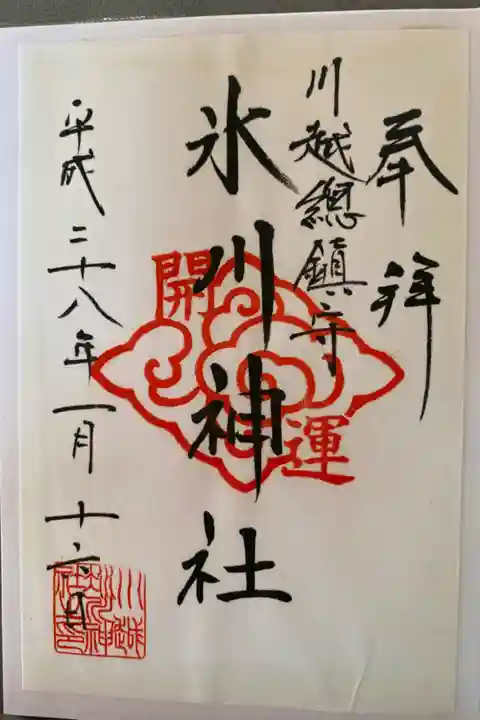 奉拝
川越總鎮守
氷川神社
開運
平成二十八年一月十六日